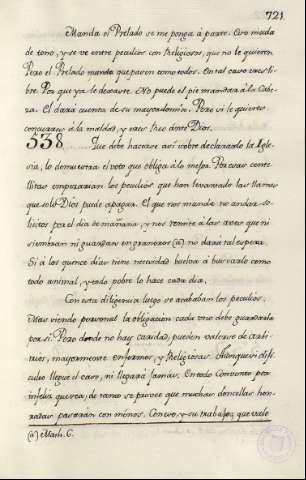 721
Manda el Prelado se me ponga á parte. Otro muda
de tono, y se ve entre peculios con Religiosos, que no le quieren.
Pero el Prelado manda que pasen como todos. En tal caso eres li-
bre. Por que ya le dexaste. No puede el pie mandar á la Cabe-
za. El dará cuenta de su mayordomía. Pero si le quieres
concurres á la maldad, y eres Reo ante Dios.
538 Que debe hacerse así sobre declararlo la Igle-
sia, lo demuestra el voto que obliga á lo mejor. Por esas cen-
tellitas empezaron los peculios que han levantado las llamas
que solo Dios puede apagar. El que nos mande no andar so-
licitos por el dia de mañana, y nos remite á las aves que ni
siembran ni guardan en graneros (a) no dará tal espera.
Si á los quince dias tiene necesidad buelva á buscarlo como
todo animal, y todo pobre lo hace cada dia.
Con esta diligencia luego se acababan los peculios.
Mas siendo personal la obligacion cada uno debe guardarla
por si. Pero donde no hay caridad, pueden valerse de arbi-
trios, mayormente enfermos, y Religiosas. Aunque es difi-
cil llegue el caso, ni llegará jamás. En todo Convento por
infeliz que sea, de tanto se provee que muchas doncellas hon-
radas pasarán con menos. Con eso, y su trabajo, que vale
(a) Math. 6.